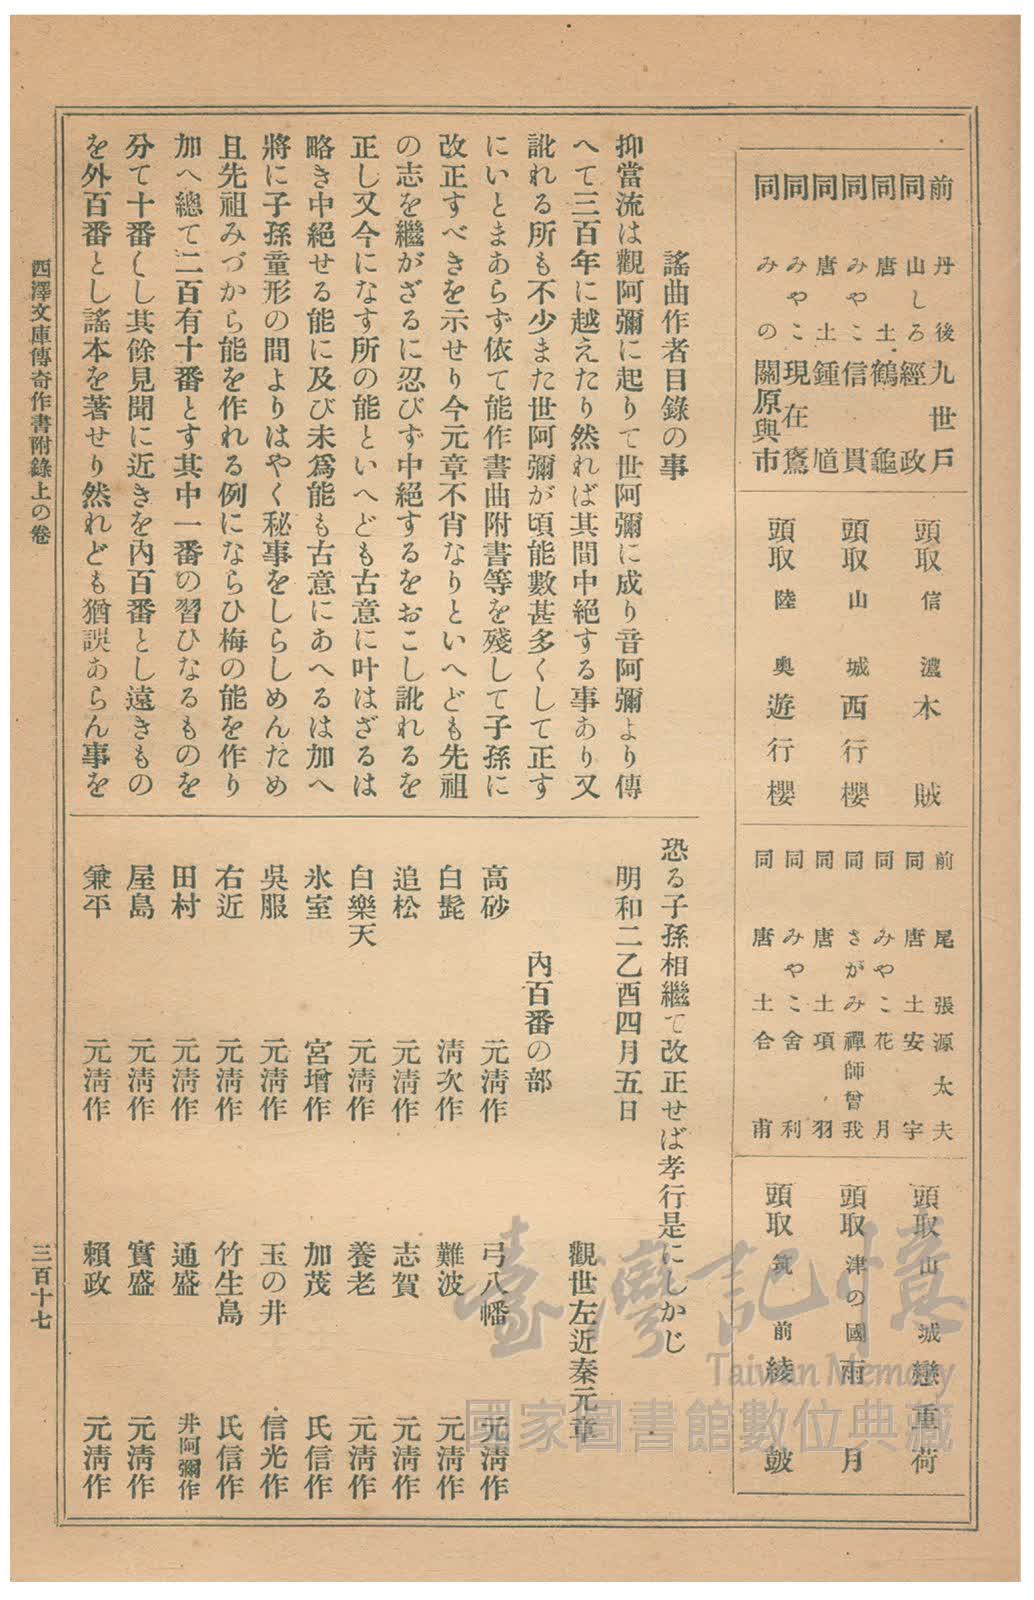 前 丹後 九世戶
同 山しろ 經政
同 唐土 鶴龜
同 みやこ 信貫
同 唐土 鍾馗
同 みやこ 現在鵺
同 みの 關原與市
頭取 信濃 木賊
頭取 山城 西行櫻
頭取 陸奧 遊行櫻
前 尾張 源太夫
同 唐土 安宇
同 みやこ 花月
同 さがみ 禪師曾我
同 唐土 項羽
同 みやこ 舍利
同 唐土 合甫
頭取 山城 戀重荷
頭取 津の國 雨月
頭取 筑前 綾皷
謠曲作者目錄の事
抑當流は觀阿彌に起りて世阿彌に成り音阿彌より傳
へて三百年に越えたり然れば其間中絕する事あり又
訛れる所も不少また世阿彌が頃能數甚多くして正す
にいとまあらず依て能作書曲附書等を殘して子孫に
改正すべきを示せり今元章不肖なりといへども先祖
の志を繼がざるに忍びず中絕するをおこし訛れるを
正し又今になす所の能といへども古意に叶はざるは
略き中絕せる能に及び未爲能も古意にあへるは加へ
將に子孫童形の間よりはやく秘事をしらしめんため
且先祖みづから能を作れる例にならひ梅の能を作り
加へ總て二百有十番とす其中一番の習ひなるものを
分て十番〱し其餘見聞に近きを內百番とし遠きもの
を外百番とし謠本を著せり然れども猶誤あらん事を
恐る子孫相繼て改正せば孝行是にしかじ
明和二乙酉四月五日
觀世左近秦元章
內百番の部
高砂 元淸作 弓八幡 元淸作
白髭 淸次作 難波 元淸作
追松 元淸作 志賀 元淸作
白樂天 元淸作 養老 元淸作
氷室 宮增作 加茂 氏信作
吳服 元淸作 玉の井 信光作
右近 元淸作 竹生島 氏信作
田村 元淸作 通盛 井阿彌作
屋島 元淸作 實盛 元淸作
兼平 元淸作 賴政 元淸作
西澤文庫傳奇作書附錄上の卷
三百十七
臺灣記憶
Taiwan Memory
國家圖書館數位典藏